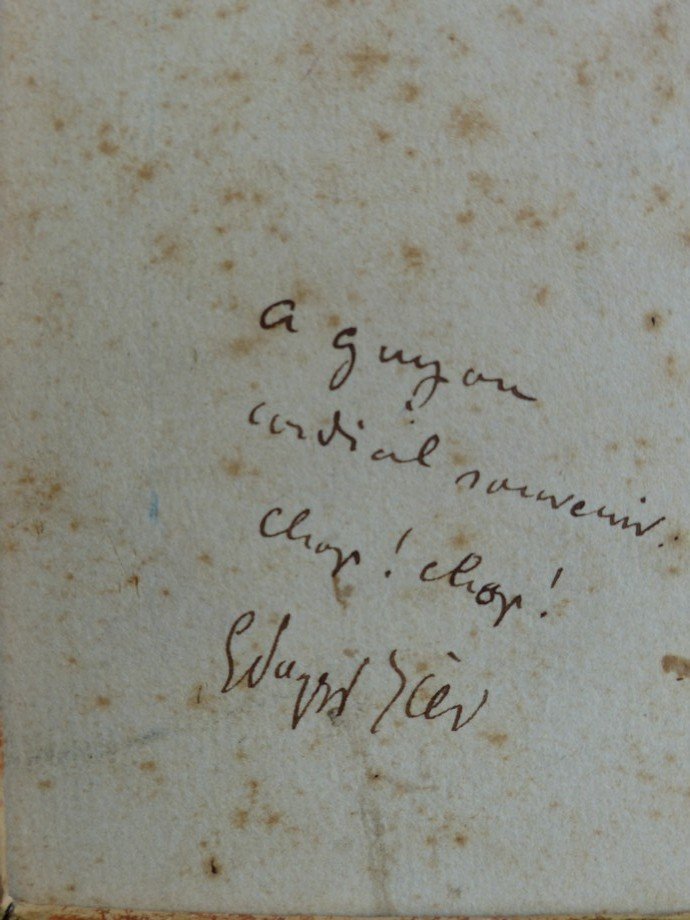 a guyon
cordial souvenir.
chop! chop!
Edouard Zier